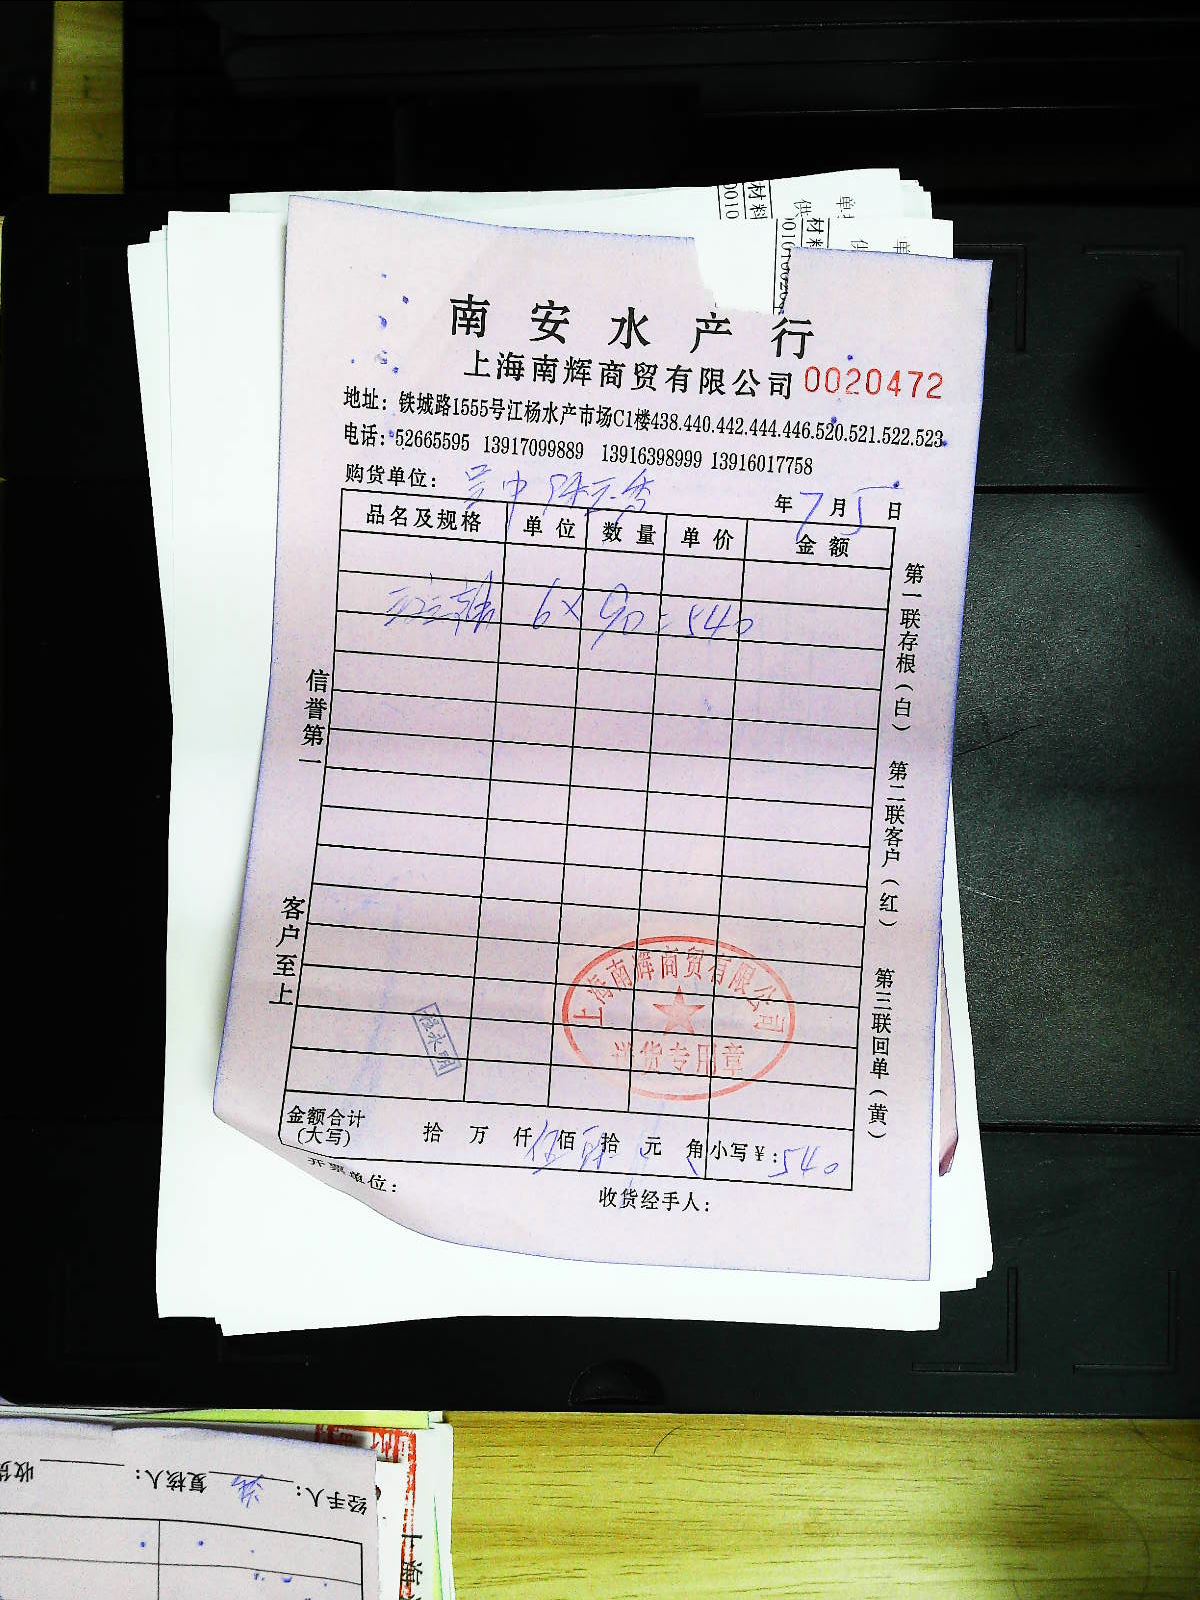 南安水产行
上海南辉商贸有限公司 0020472
地址：铁城路1555号江杨水产市场C1楼438.440.442.444.446.520.521.522.523
电话：52665595 13917099889 13916398999 13916017758
购货单位：
年7月5日
品名及规格 单位 数量 单价 金额
6×90=540
信誉第一
客户至上
第一联存根(白)
第二联客户(红)
第三联回单(黄)
上海南辉商贸有限公司
送货专用章
金额合计
(大写)
拾 万 仟 伍佰 肆拾 元 角 小写￥：540
开票单位：
收货经手人：
材料
0010
供
单
材料
供
单
经手人：
复核人：
收货
上海